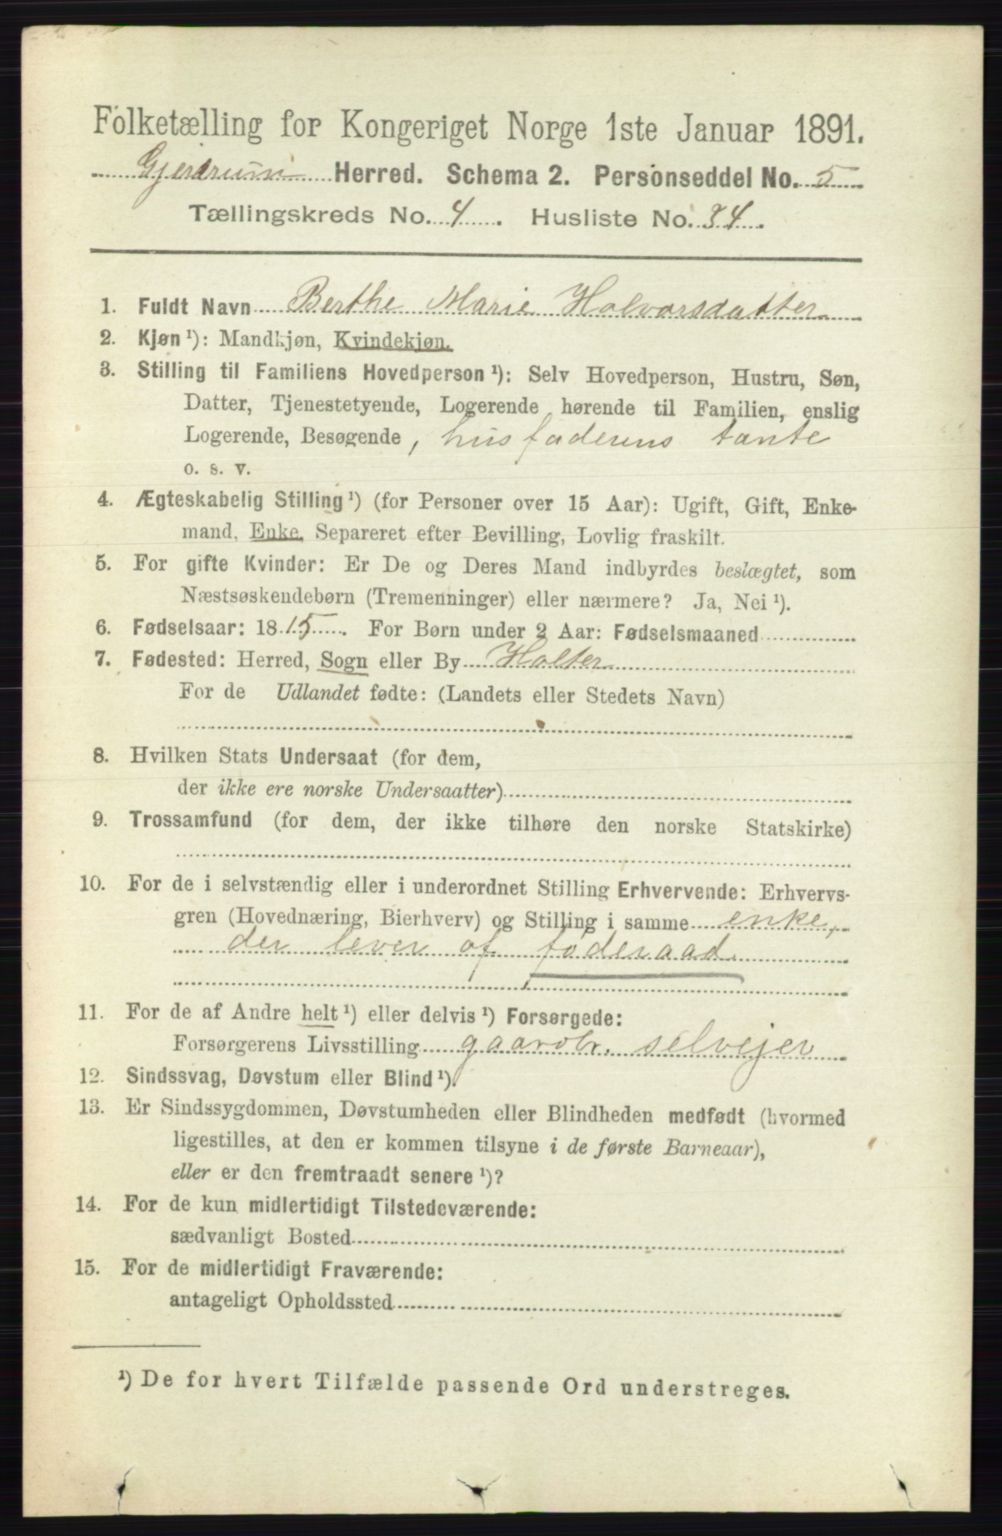 Folketælling for Kongeriget Norge 1ste Januar 1891.
Gjerdrum Herred. Schema 2. Personseddel No. 5
Tællingskreds No. 4. Husliste No. 34.
1. Fuldt Navn Berthe Marie Halvorsdatter
2. Kjøn ¹): Mandkjøn, Kvindekjøn.
3. Stilling til Familiens Hovedperson ¹): Selv Hovedperson, Hustru, Søn,
Datter, Tjenestetyende, Logerende hørende til Familien, enslig
Logerende, Besøgende, husfaderens tante
o. s. v.
4. Ægteskabelig Stilling ¹) (for Personer over 15 Aar): Ugift, Gift, Enke-
mand, Enke, Separeret efter Bevilling, Lovlig fraskilt.
5. For gifte Kvinder: Er De og Deres Mand indbyrdes beslægtet, som
Næstsøskendebørn (Tremenninger) eller nærmere? Ja, Nei ¹).
6. Fødselsaar: 1815. For Børn under 2 Aar: Fødselsmaaned
7. Fødested: Herred, Sogn eller By Holter
For de Udlandet fødte: (Landets eller Stedets Navn)
8. Hvilken Stats Undersaat (for dem,
der ikke ere norske Undersaatter)
9. Trossamfund (for dem, der ikke tilhøre den norske Statskirke)
10. For de i selvstændig eller i underordnet Stilling Erhvervende: Erhvervs-
gren (Hovednæring, Bierhverv) og Stilling i samme enke,
der lever af føderaad.
11. For de af Andre helt ¹) eller delvis ¹) Forsørgede:
Forsørgerens Livsstilling gaardbr. selvejer
12. Sindssvag, Døvstum eller Blind ¹).
13. Er Sindssygdommen, Døvstumheden eller Blindheden medfødt (hvormed
ligestilles, at den er kommen tilsyne i de første Barneaar),
eller er den fremtraadt senere ¹)?
14. For de kun midlertidigt Tilstedeværende:
sædvanligt Bosted
15. For de midlertidigt Fraværende:
antageligt Opholdssted
¹) De for hvert Tilfælde passende Ord understreges.